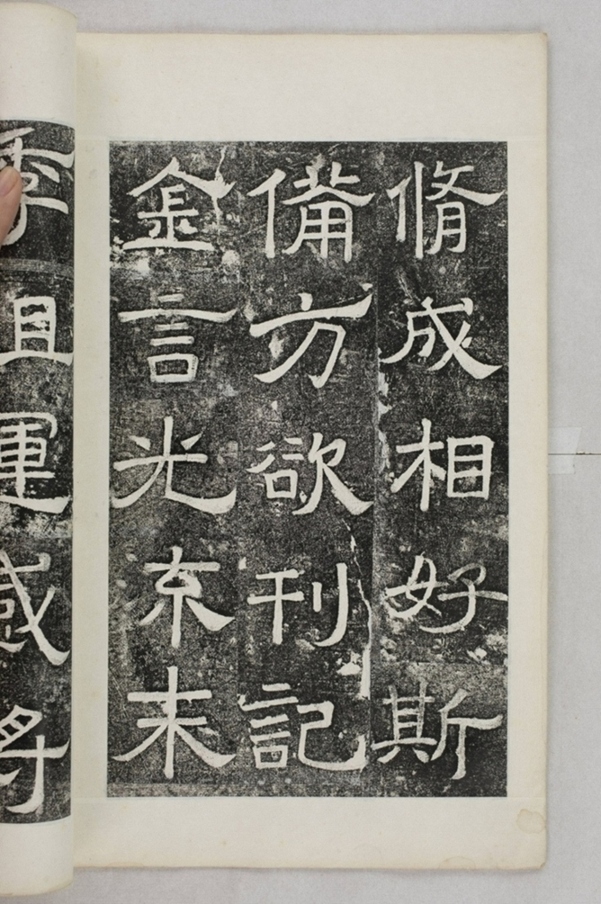 脩成相好斯
備方欲刊記
金言光示末
季且運感將